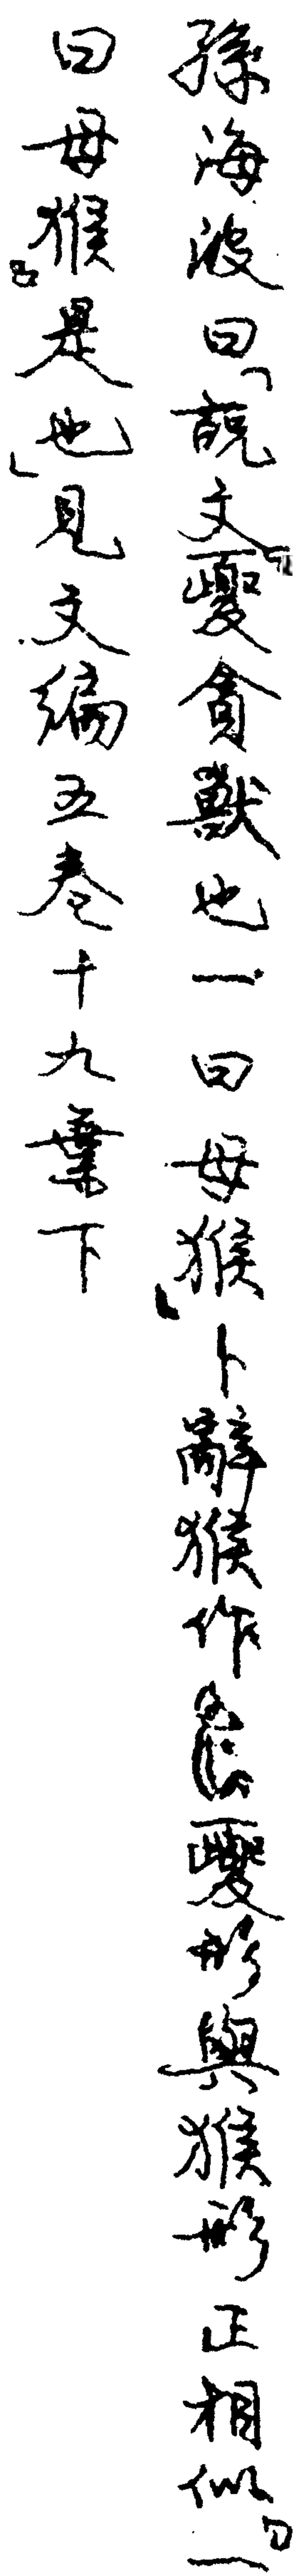 孫海波曰「說文『夒貪獸也一曰母猴』卜辭猴作夒形與猴形正相似『一
曰母猴』是也」見文編五卷十九葉下